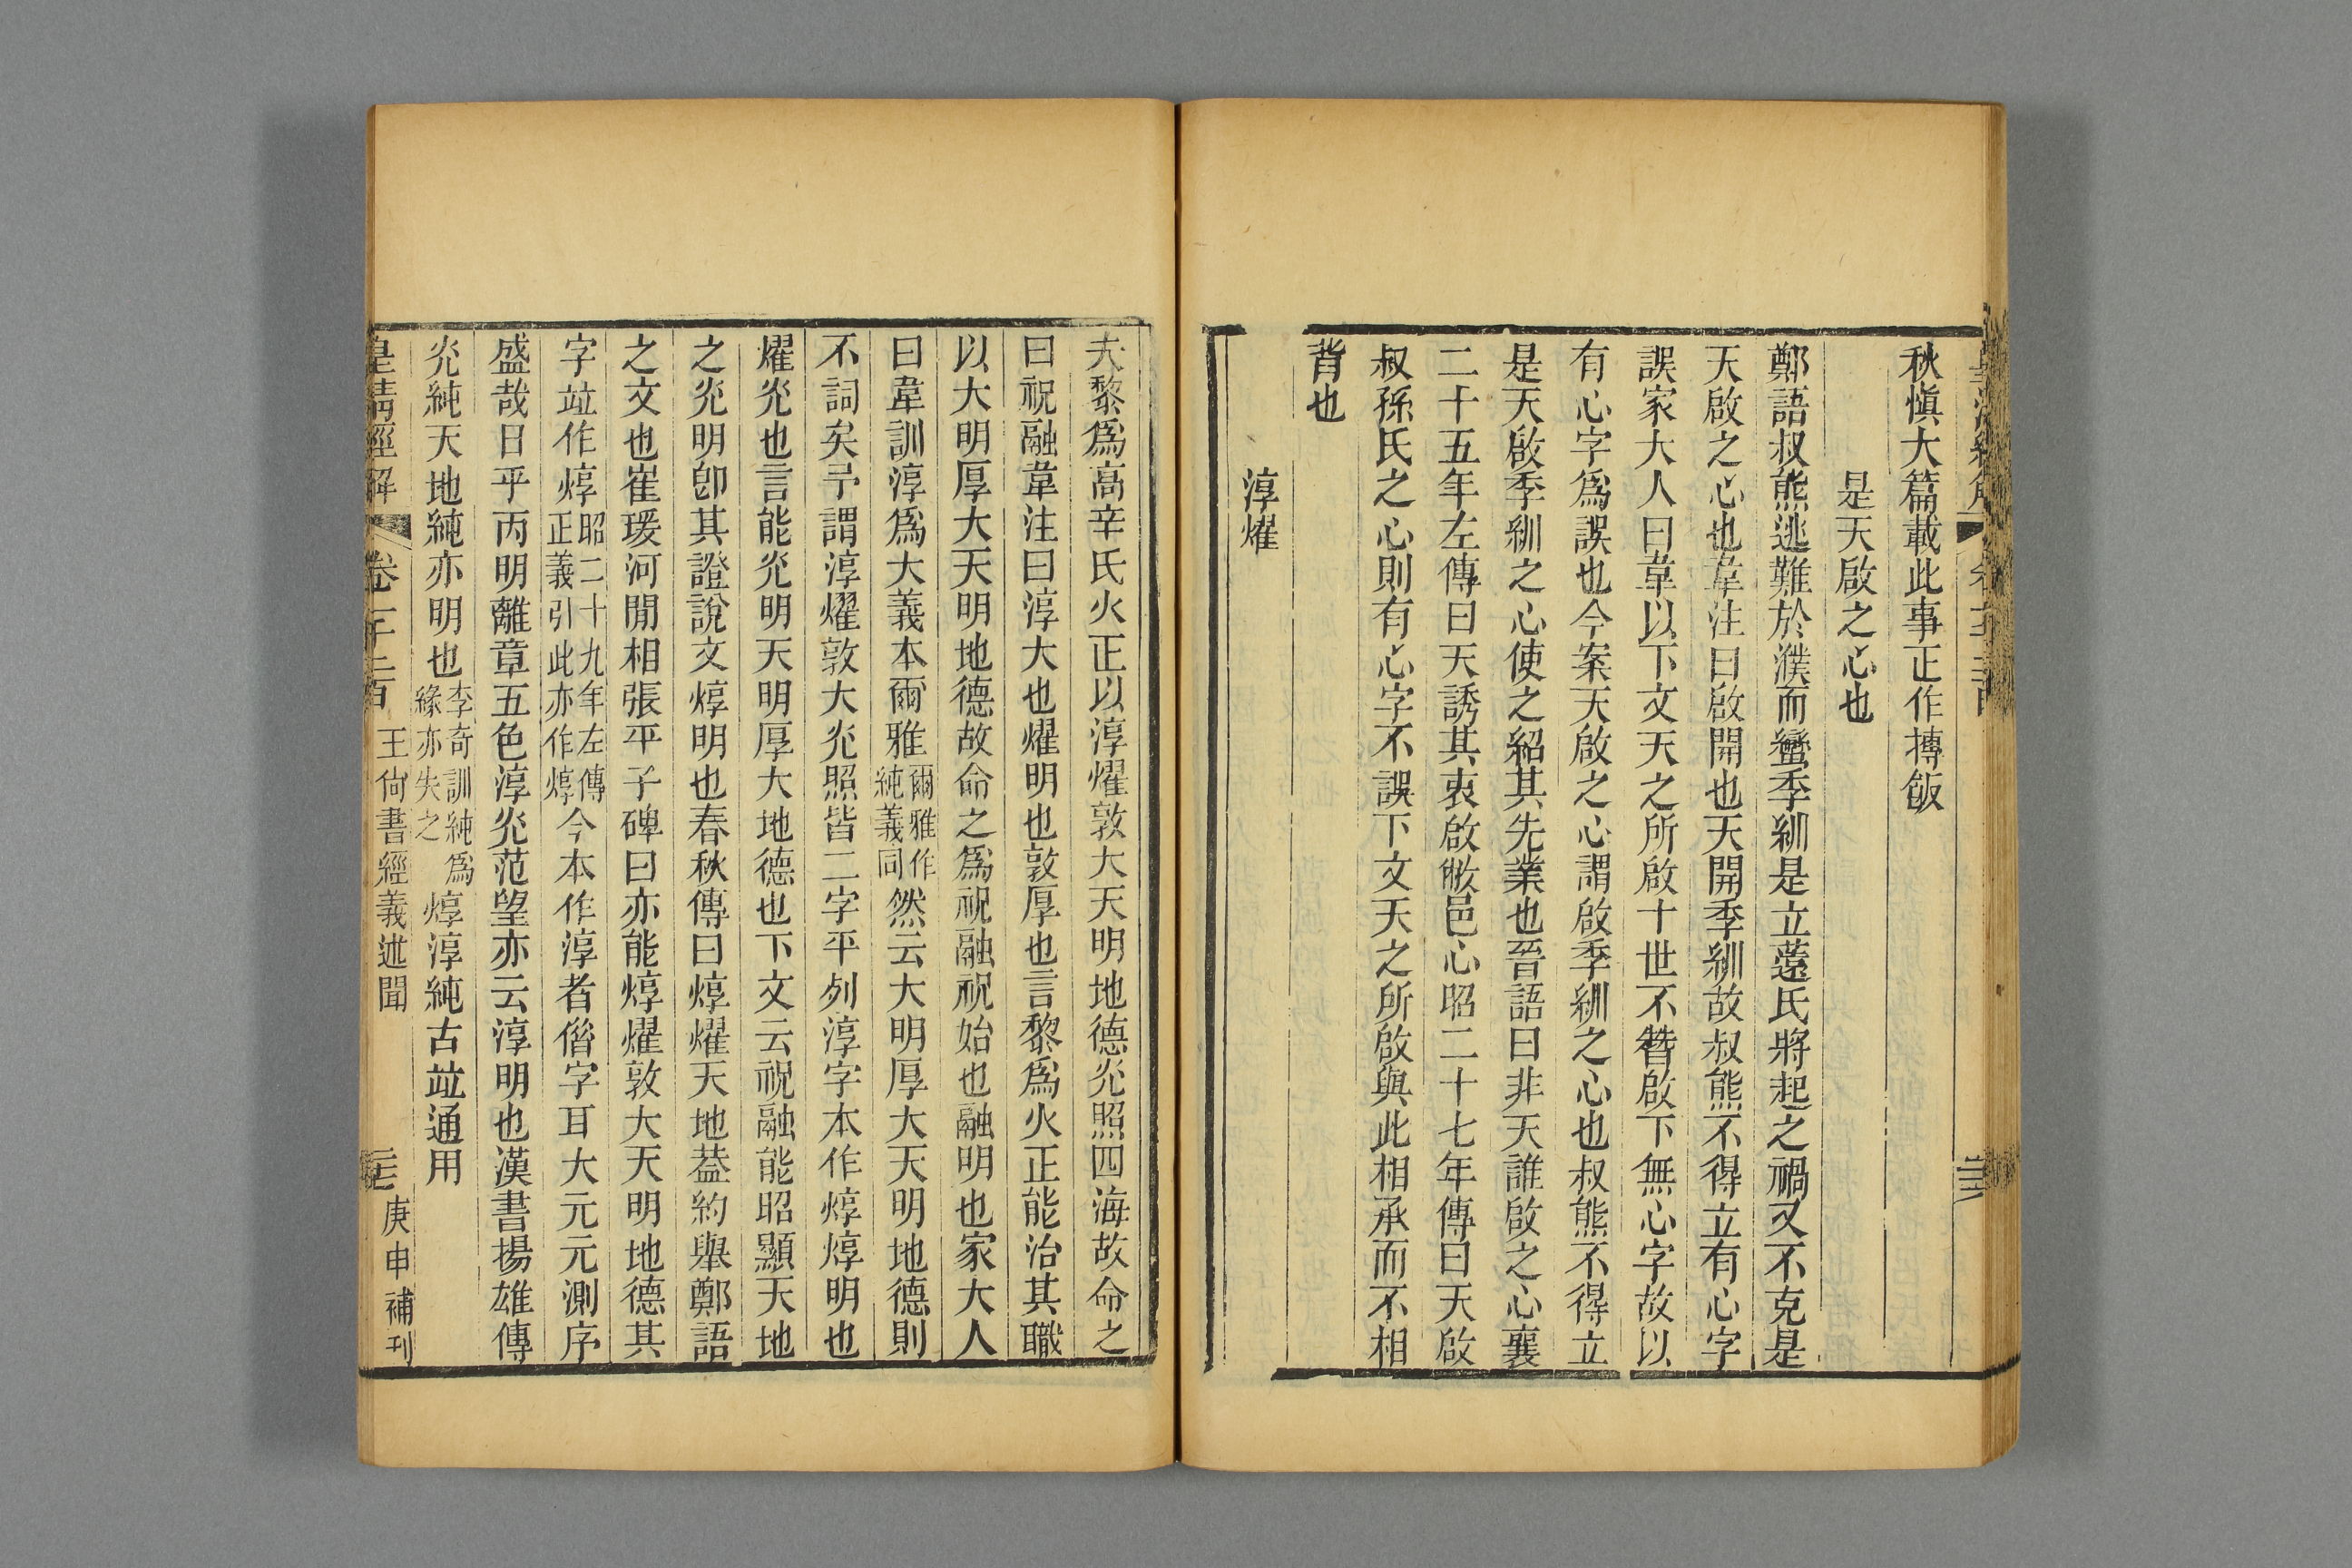 秋愼大篇載此事正作摶飯
是天啟之心也
鄭語叔熊逃難於濮而蠻季紃是立薳氏將起之禍又不克是
天啟之心也韋注曰啟開也天開季紃故叔熊不得立有心字
誤家大人曰韋以下文天之所啟十世不替啟下無心字故以
有心字爲誤也今案天啟之心謂啟季紃之心也叔熊不得立
是天啟季紃之心使之紹其先業也晉語曰非天誰啟之心襄
二十五年左傳曰天誘其衷啟敝邑心昭二十七年傳曰天啟
叔孫氏之心則有心字不誤下文天之所啟與此相承而不相
背也
淳燿
夫黎爲高辛氏火正以淳燿敦大天明地德光照四海故命之
曰祝融韋注曰淳大也燿明也敦厚也言黎爲火正能治其職
以大明厚大天明地德故命之爲祝融祝始也融明也家大人
曰韋訓淳爲大義本爾雅爾雅作純義同然云大明厚大天明地德則
不詞矣予謂淳燿敦大光照皆二字平列淳字本作焞焞明也
燿光也言能光明天明厚大地德也下文云祝融能昭顯天地
之光明卽其證說文焞明也春秋傳曰焞燿天地葢約舉鄭語
之文也崔瑗河閒相張平子碑曰亦能焞燿敦大天明地德其
字竝作焞昭二十九年左傳正義引此亦作焞今本作淳者偺字耳大元元測序
盛哉日乎丙明離章五色淳光范望亦云淳明也漢書揚雄傳
光純天地純亦明也李奇訓純爲緣亦失之焞淳純古竝通用
皇淸經解 卷一千二百 王尙書經義述聞 庚申補刊